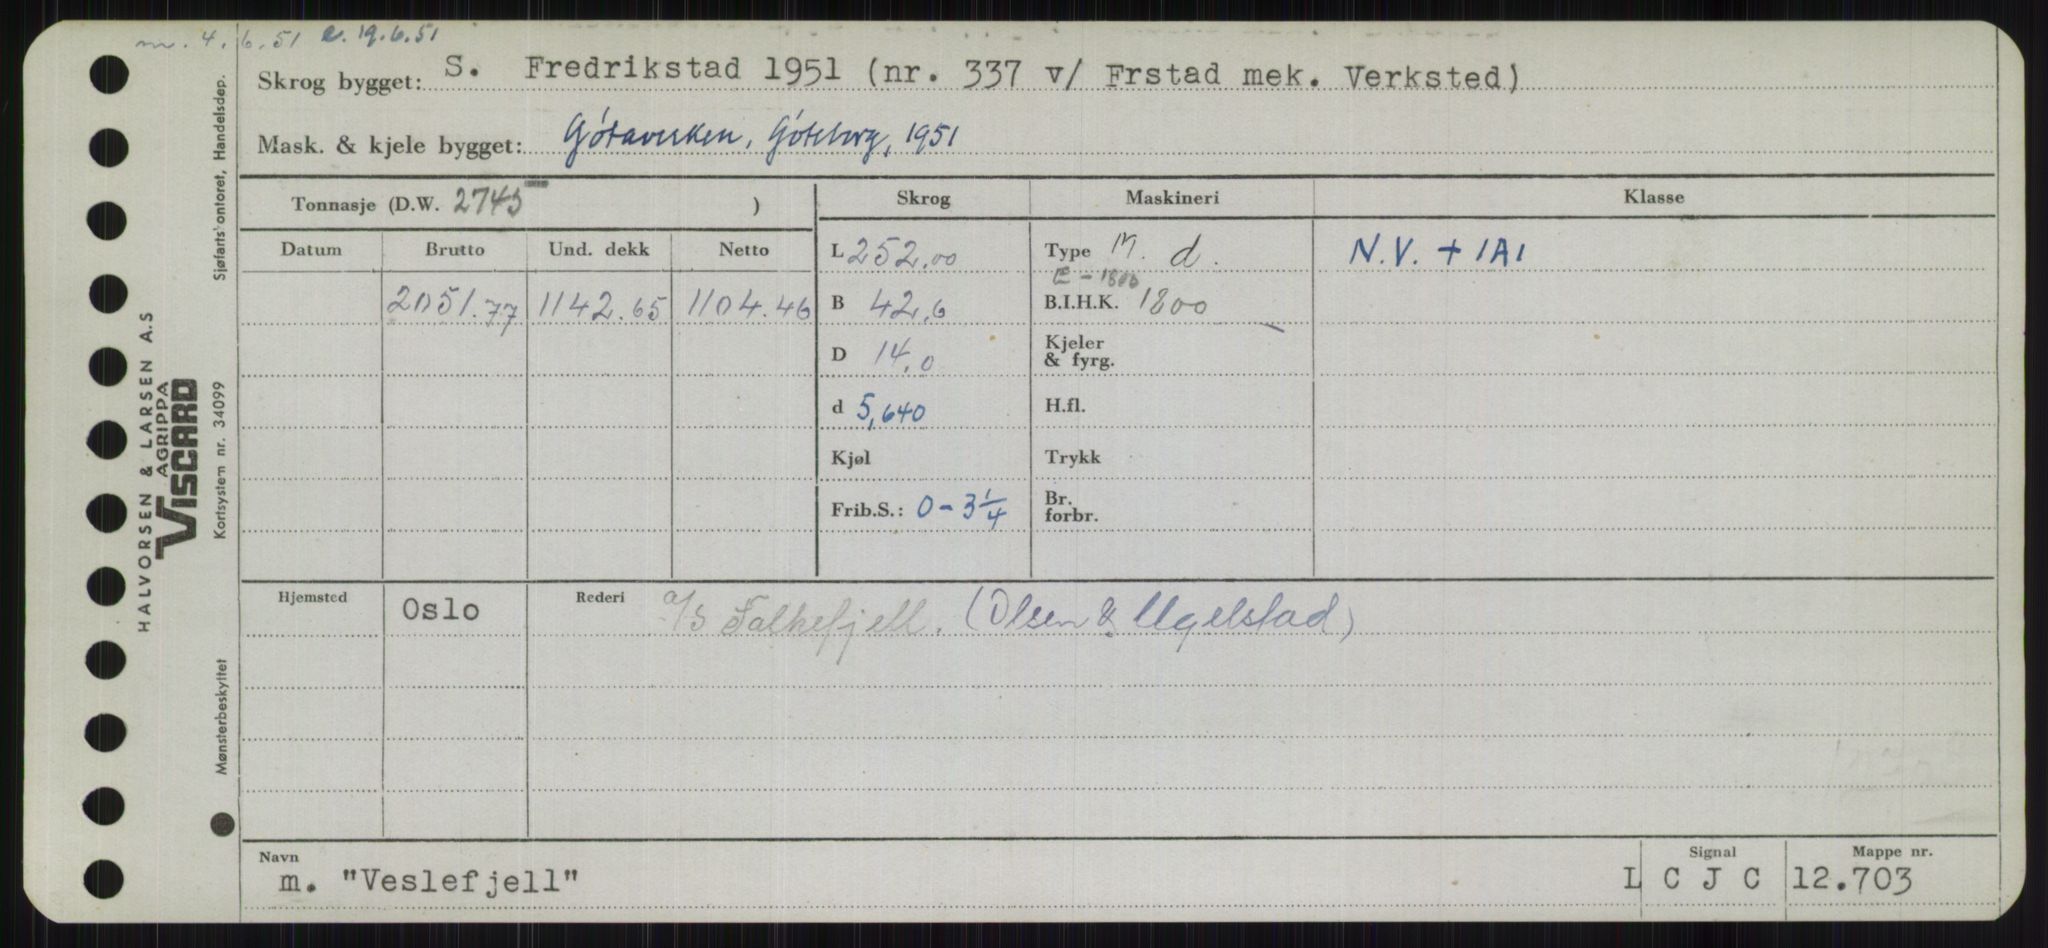 m. 4.6.51 e. 19.6.51
Skrog bygget: S. Fredrikstad 1951 (nr. 337 v/ Frstad mek. Verksted)
Mask. & kjele bygget: Götaverken, Göteborg, 1951
Tonnasje (D.W. 2745 )
Skrog Maskineri Klasse
Datum Brutto Und. dekk Netto
L 252.00 Type M. d. N.V. + 1A1
E - 1800
2051.77 1142.65 1104.46 B 42,6 B.I.H.K. 1800
D 14,0 Kjeler & fyrg.
d 5,640 H.fl.
Kjøl Trykk
Frib.S.: 0-3 1/4 Br. forbr.
Hjemsted Oslo Rederi a/s Falkefjell. (Olsen & Ugelstad)
Navn Signal Mappe nr.
m. "Veslefjell" L C J C 12.703
HALVORSEN & LARSEN A.S
AGRIPPA
VISCARD
Mønsterbeskyttet Kortsystem nr. 34099 Sjøfartskontoret, Handelsdep.